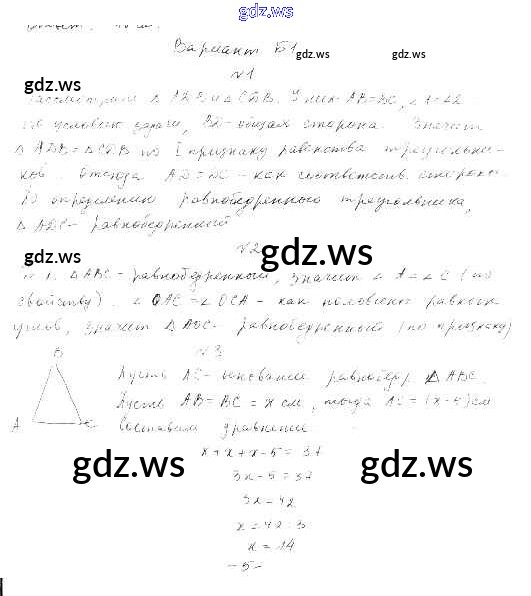 gdz.ws
Вариант Б1
gdz.ws gdz.ws
№1
gdz.ws
Рассмотрим Δ ADB и Δ CDB. У них AB=BC, ∠1=∠2
по условию задачи, BD - общая сторона. Значит
Δ ADB = Δ CDB по I признаку равенства треугольни-
ков. Отсюда AD=DC - как соответств. стороны.
По определению равнобедренного треугольника,
Δ ADC - равнобедренный
№2
gdz.ws gdz.ws
Т.к. ΔABC - равнобедренный, значит ∠A=∠C (по
свойству). ∠OAC=∠OCA - как половины равных
углов, значит ΔAOC - равнобедренный (по признаку)
№3
B
Пусть AC - основание равнобедр. ΔABC.
Пусть AB=BC=x см, тогда AC=(x-5) см
A C Составим уравнение
x+x+x-5=37
3x-5=37
gdz.ws gdz.ws
3x=42
x=42:3
x=14
-5-